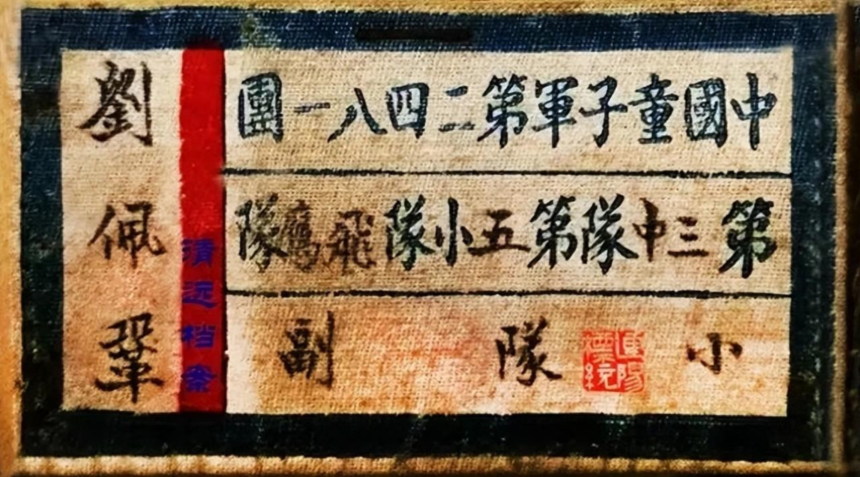 中國童子軍第二四八一團
第三中隊第五小隊飛鷹隊
小隊副
劉佩鞏
清远档案